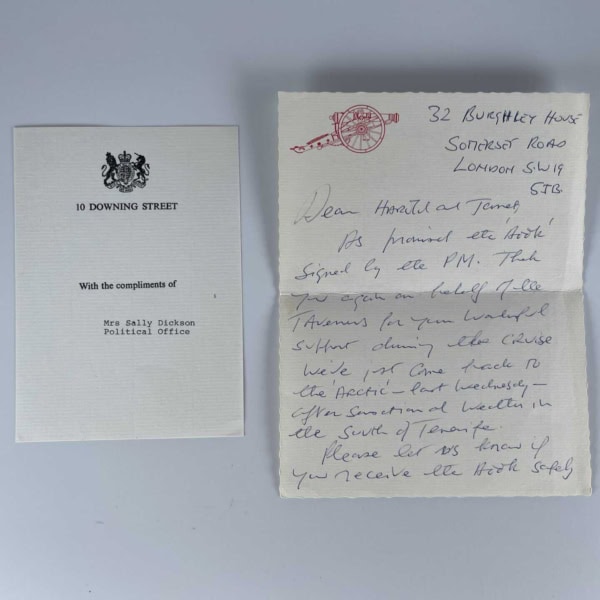 10 DOWNING STREET
With the compliments of
Mrs Sally Dickson
Political Office
32 BURGHLEY HOUSE
SOMERSET ROAD
LONDON S.W19
5JB.
Dear Harold and
As promised the 'Book'
signed by the PM. Thank
you again on behalf of the
TAVERNERS for your wonderful
support during the CRUISE
We've just come back to
the 'ARCTIC' – last Wednesday –
after sensational weather in
the South of Tenerife.
Please let us know if
you receive the Book safely